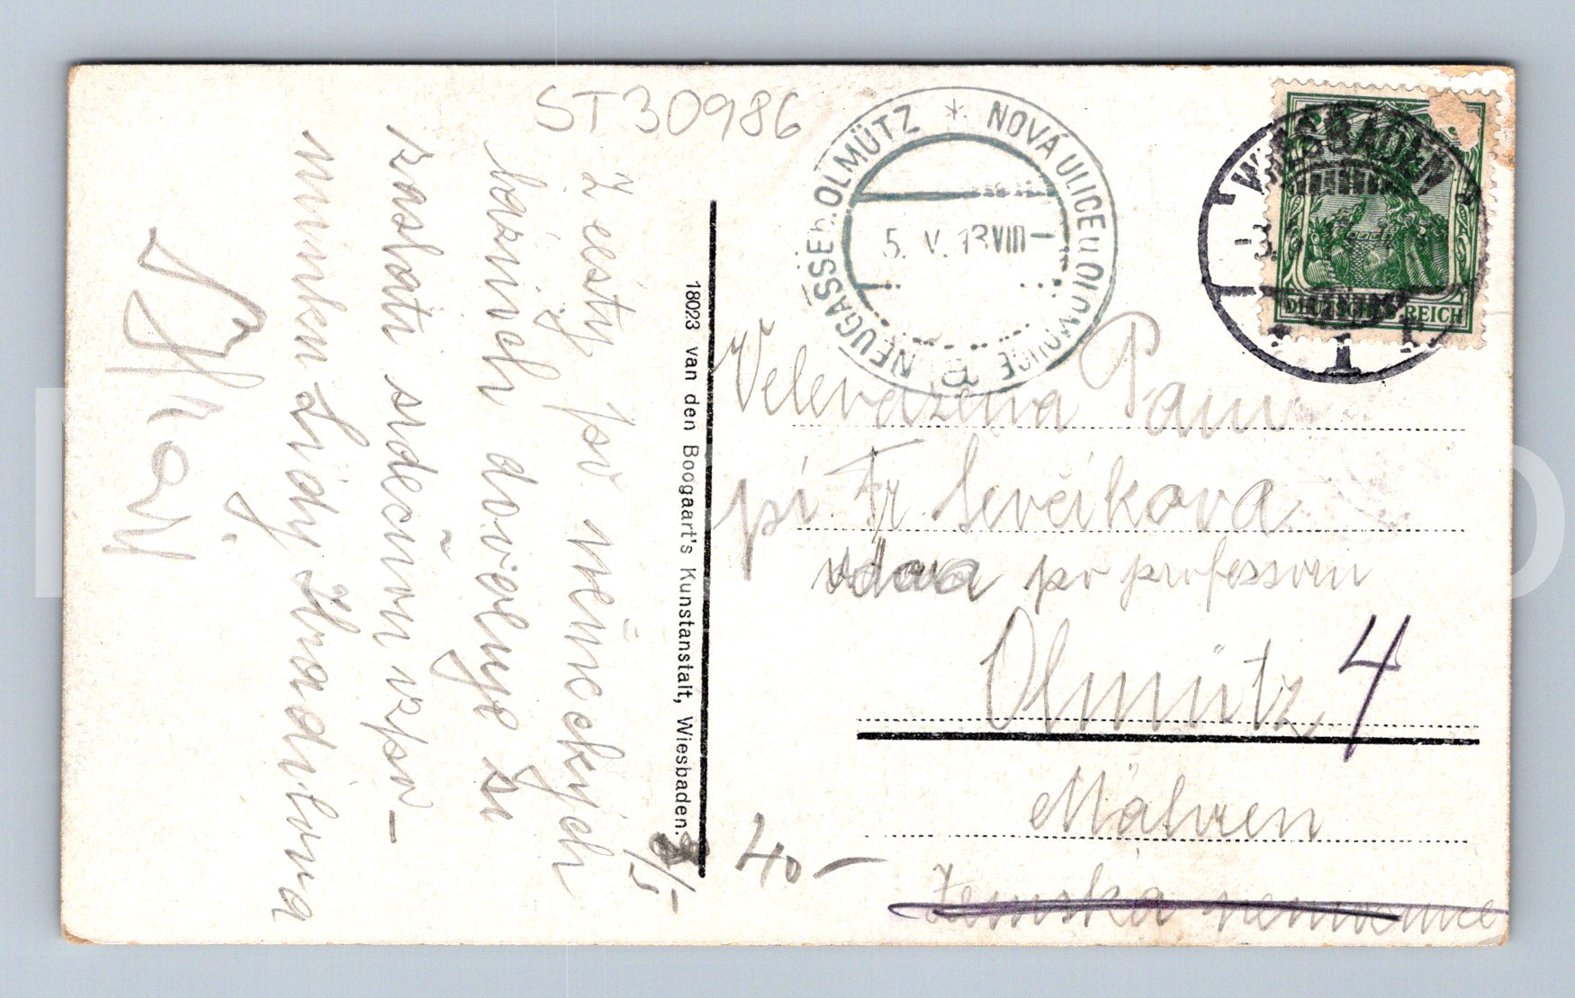 ST30986
Z cesty po německých
lázních dovoluje si
zaslati srdečnou vzpo-
mínku Lidy Hradilova
18023 van den Boogaart's Kunstanstalt, Wiesbaden.
NEUGASSE b. OLMÜTZ * NOVÁ ULICE u OLOMOUCE
5. V. 13 VIII-
WIESBADEN
1
DEUTSCHES REICH
Velevážená Paní
pí Fr Ševčíkova
vdova po professoru
Olmütz 4
Mähren
Zemská nemocnice
40-